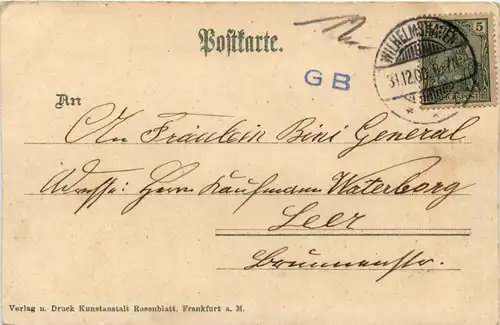 Postkarte.
GB
WILHELMSHAVEN
31.12.00.
5
REICHSPOST
An
An Fräulein Bini General
Adresse: Herrn Kaufmann Waterborg
Leer
Brunnenstr.
Verlag u. Druck Kunstanstalt Rosenblatt, Frankfurt a. M.